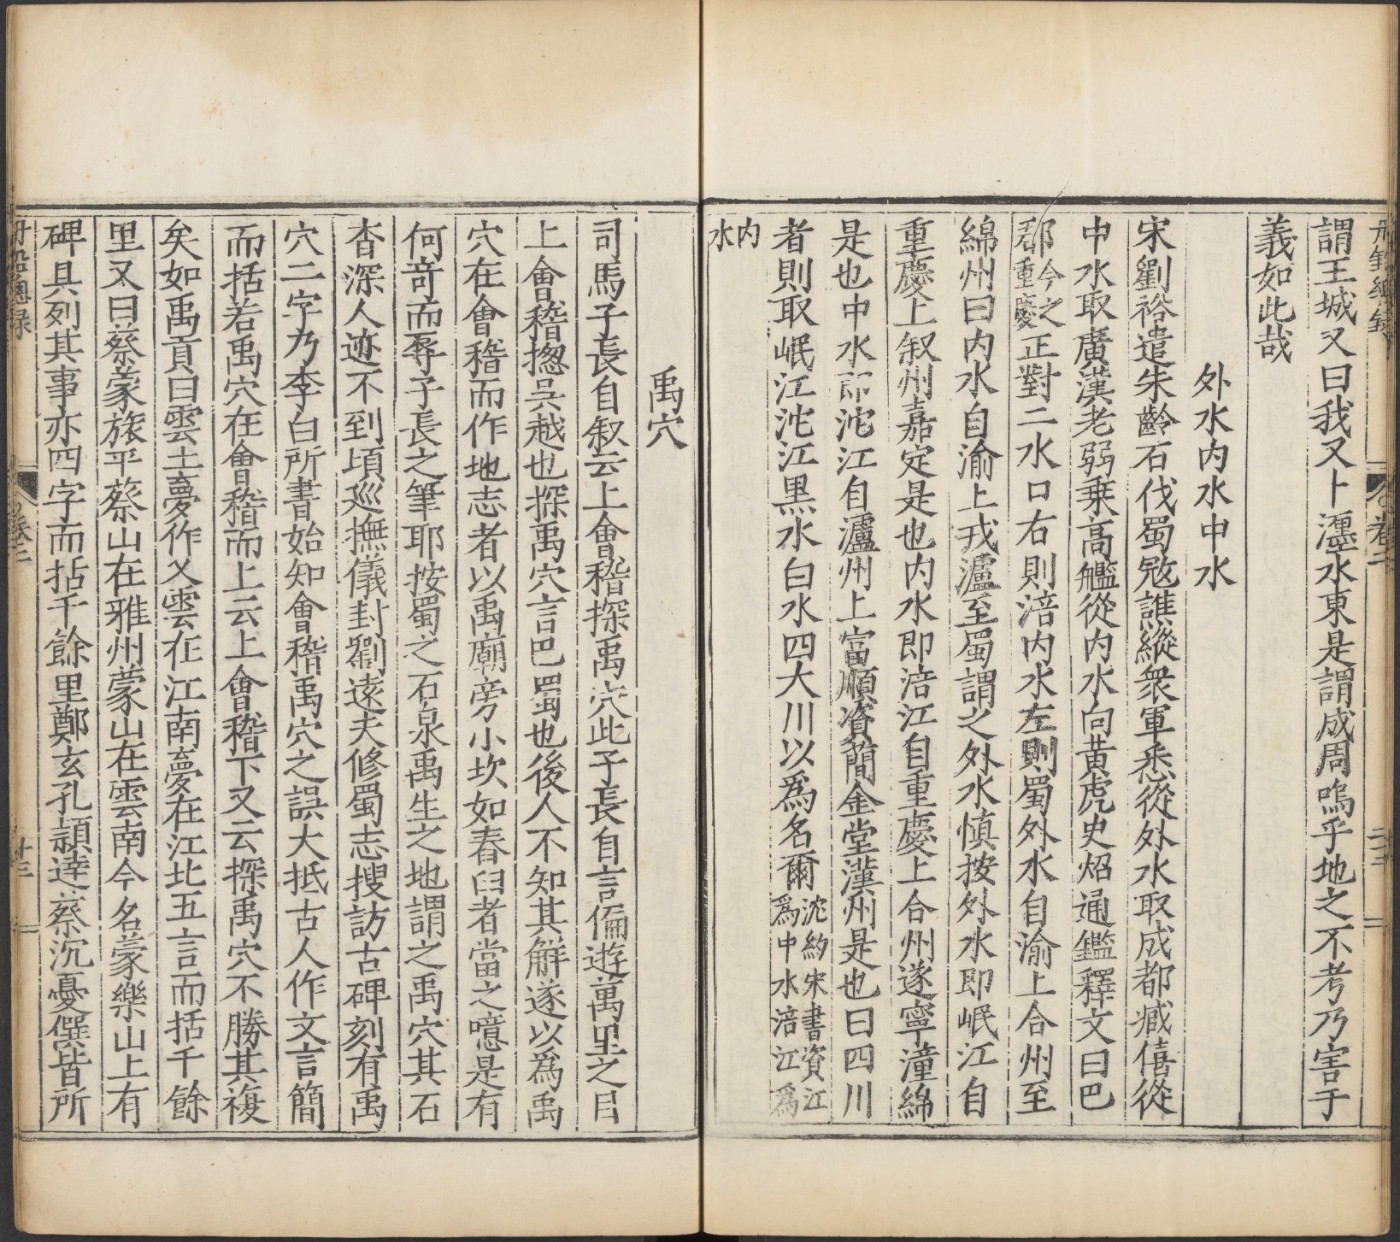 丹鉛總錄
卷二
二十二
謂王城又曰我又卜瀍水東是謂成周嗚乎地之不考乃害于
義如此哉
外水内水中水
宋劉裕遣朱齡石伐蜀敓譙縱衆軍悉從外水取成都臧僖從
中水取廣漢老弱乗高艦從内水向黄虎史炤通鑑釋文曰巴
郡今之重慶正對二水口右則涪内水左則蜀外水自渝上合州至
綿州曰内水自渝上戎瀘至蜀謂之外水慎按外水即岷江自
重慶上叙州嘉定是也内水即涪江自重慶上合州遂寧潼綿
是也中水即沱江自瀘州上富順資簡金堂漢州是也曰四川
者則取岷江沱江黒水白水四大川以爲名爾沈約宋書資江爲中水涪江爲
内水
禹穴
司馬子長自叙云上會稽探禹穴此子長自言偏遊萬里之目
上會稽揔吳越也探禹穴言巴蜀也後人不知其解遂以爲禹
穴在會稽而作地志者以禹廟旁小坎如舂臼者當之噫是有
何奇而辱子長之筆耶按蜀之石泉禹生之地謂之禹穴其石
杳深人迹不到頃巡撫儀封劉遠夫修蜀志搜訪古碑刻有禹
穴二字乃李白所書始知會稽禹穴之誤大抵古人作文言簡
而括若禹穴在會稽而上云上會稽下又云探禹穴不勝其複
矣如禹貢曰雲土夢作乂雲在江南夢在江北五言而括千餘
里又曰蔡蒙旅平蔡山在雅州蒙山在雲南今名蒙樂山上有
碑具列其事亦四字而括千餘里鄭玄孔頴達蔡沉憂僎皆所
丹鉛總録
卷二
廿三